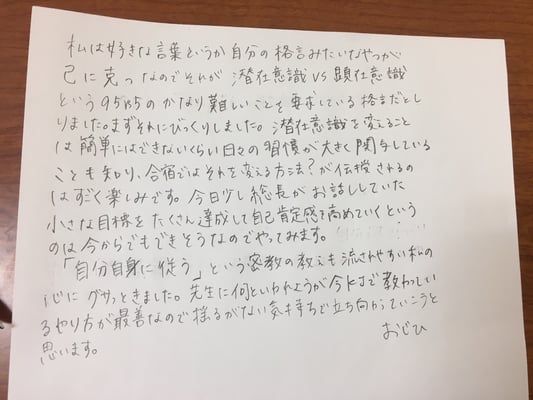 私は好きな言葉というか自分の格言みたいなやつが
己に克つなのでそれが潜在意識VS顕在意識
という95対5のかなり難しいことを要求している格言だとし
りました。まずそれにびっくりしました。潜在意識を変えること
は簡単にはできないくらい日々の習慣が大きく関与している
ことも知り、合宿ではそれを変える方法?が伝授されるの
はすごく楽しみです。今日少し総長がお話ししていた
小さな目標をたくさん達成して自己肯定感を高めていくという
のは今からでもできそうなのでやってみます。
「自分自身に従う」という密教の教えも流されやすい私の
心にグサッときました。先生に何といわれようが今KJで教わってい
るやり方が最善なので揺るがない気持ちで立ち向かっていこうと
思います。
おじひ